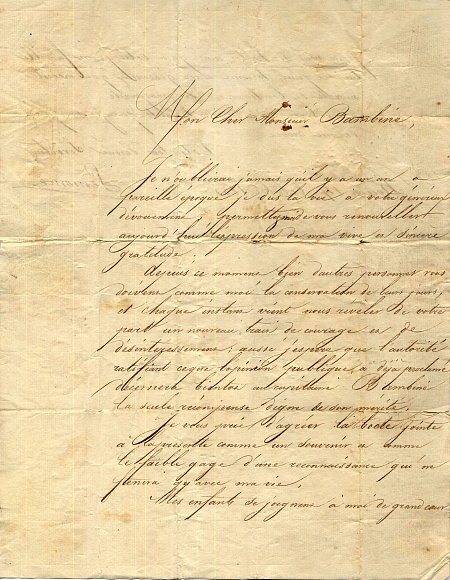 Mon Cher Monsieur Bambine,
Je n'oublierai jamais qu'il y a un an a
pareille époque je dus la vie a votre généreux
dévouement, permettez de vous renouveller
aujourd'hui l'expression de ma vive et sincère
gratitude.
Depuis ce moment bien d'autres personnes vous
doivent comme moi la conservation de leurs jours,
et chaque instant vient nous reveler de votre
part un nouveau trait de courage et de
désinteressement; aussi j'espère que l'autorité
ratifiant ce que l'opinion publique a déja proclamé
décernera bientot au capitaine Bambine
la seule récompense digne de son mérite.
Je vous prie d'agréer la boete jointe
à la presente comme un souvenir et comme
le faible gage d'une reconnaissance qui ne
finira qu'avec ma vie.
Mes enfants se joignent à moi de grand coeur